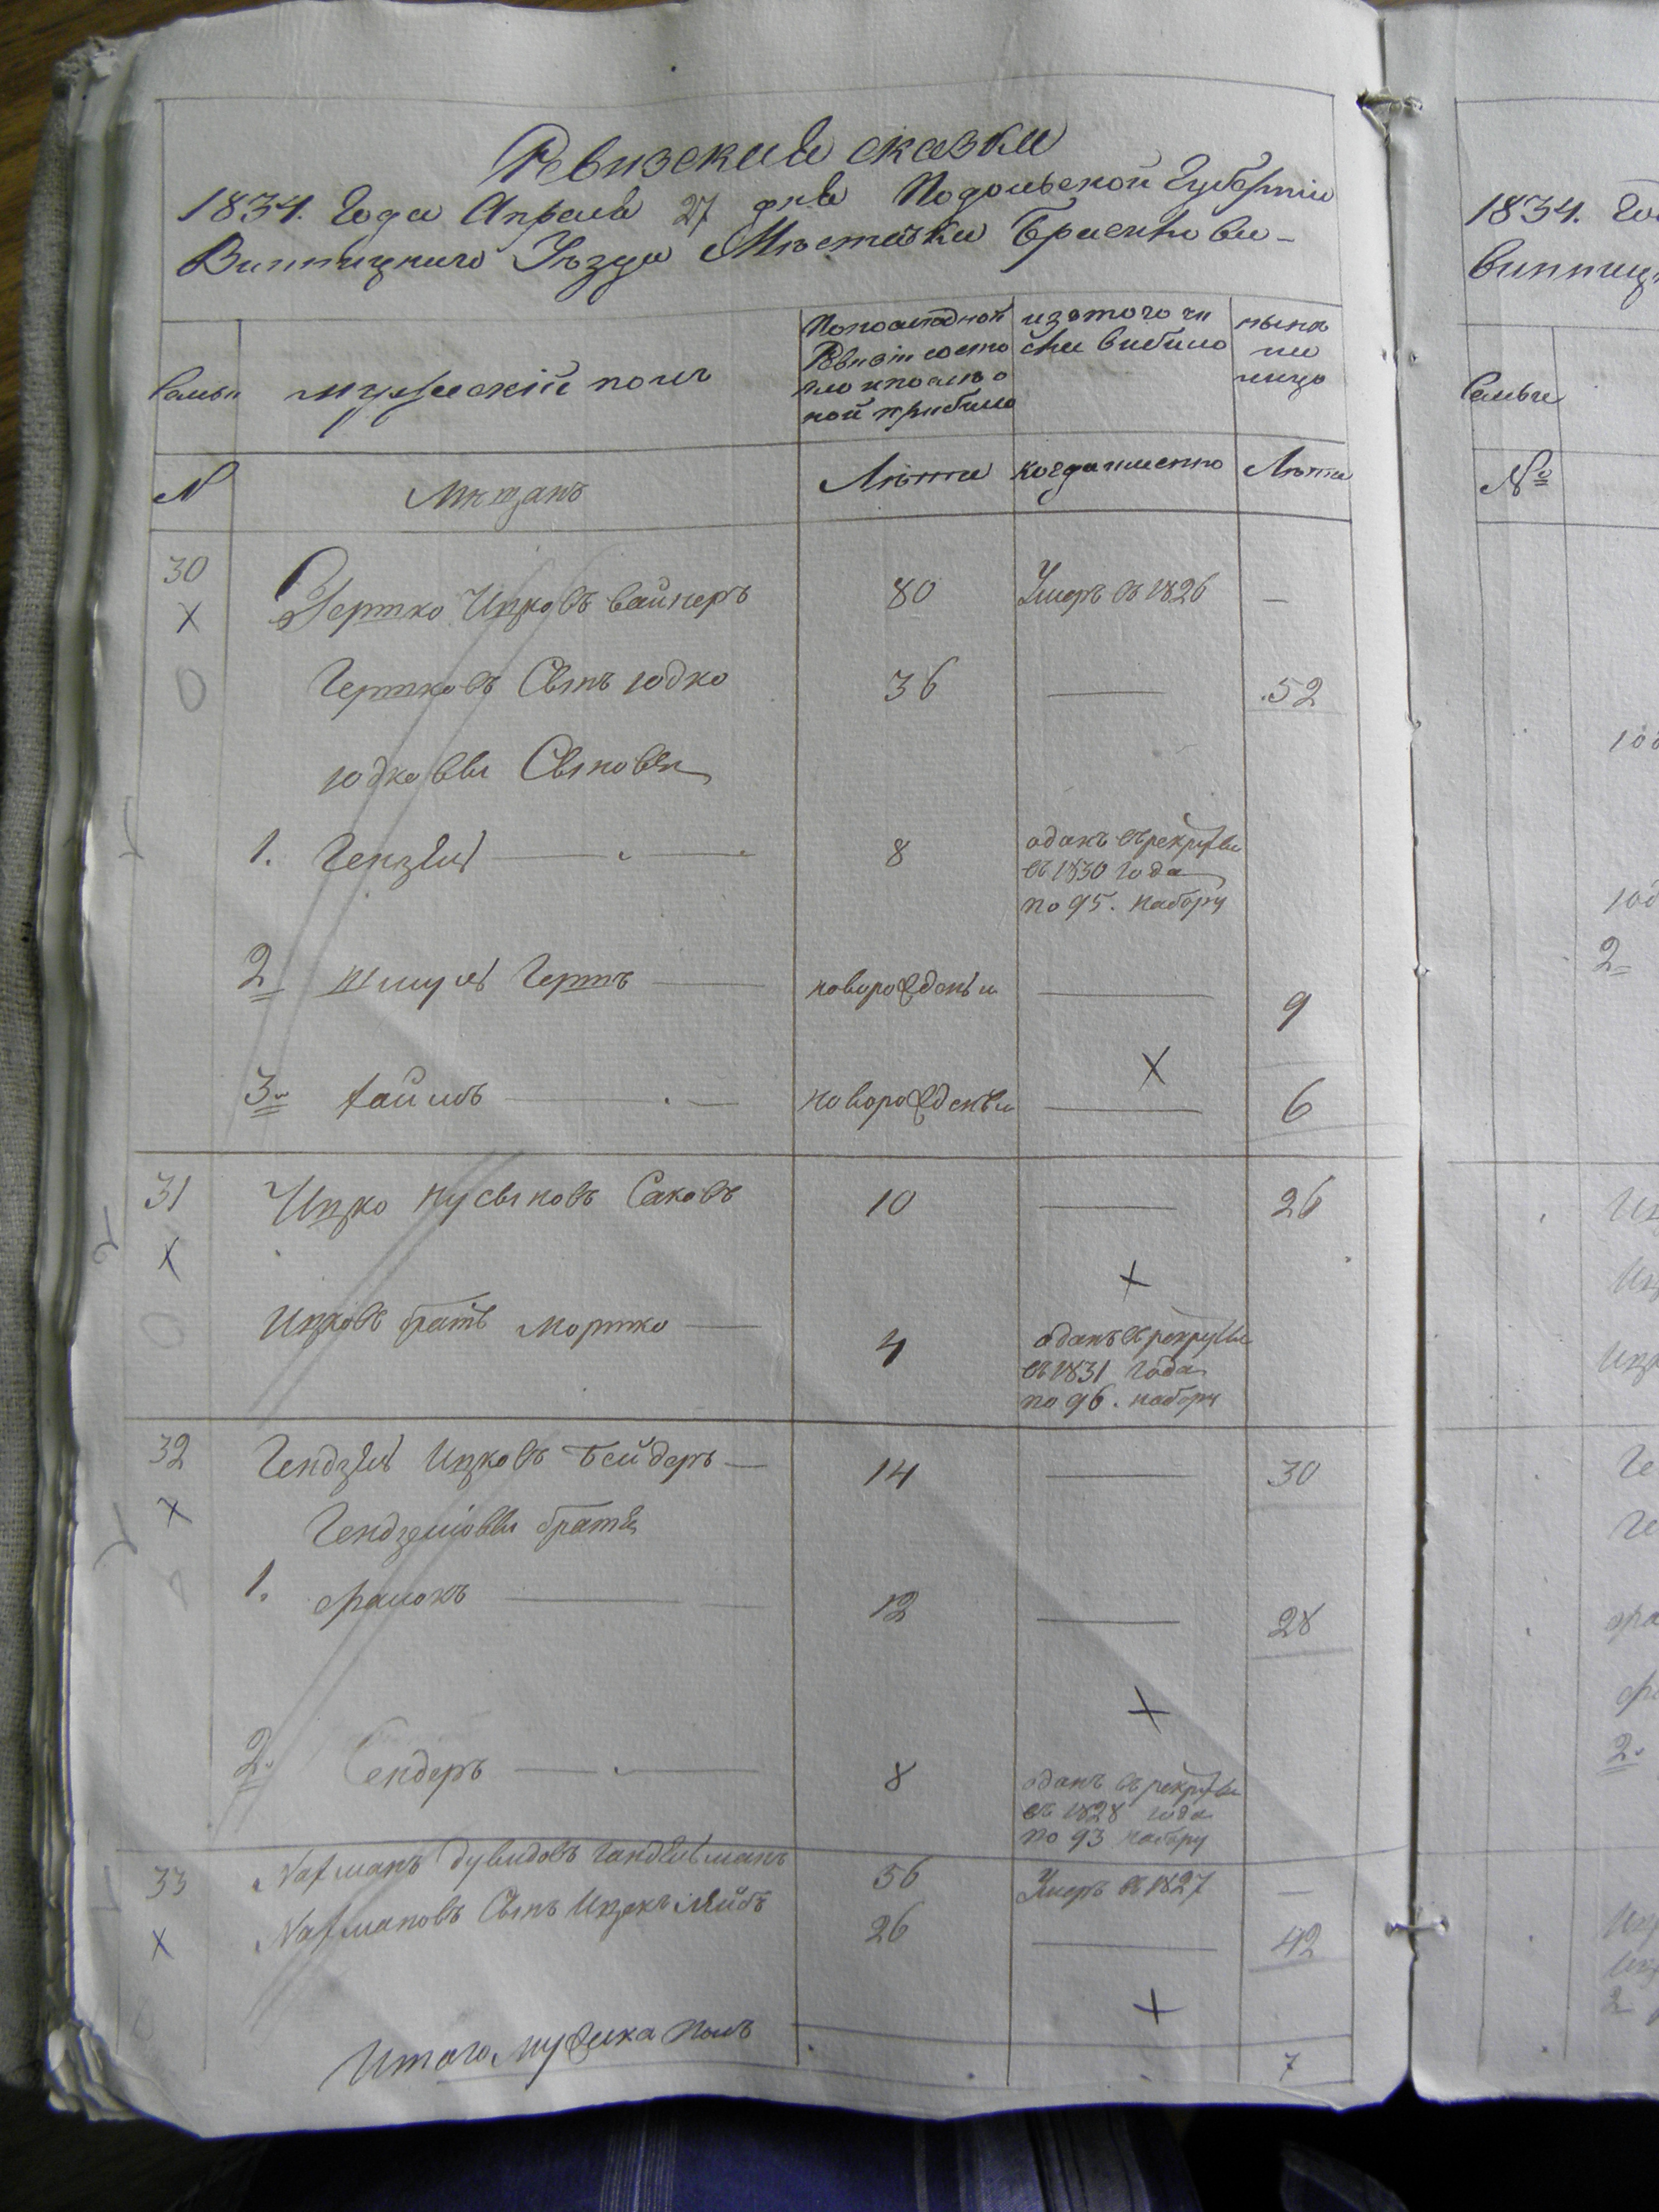 Ревизския сказки
1834. Года Апреля 27 дня Подольской Губернiи
Винницкого Уезда Местечки Браилова
Семьи
мужескiй полъ
По последной
Ревизiи состо
яло и после о
ной прибыло
из этого чи
сла выбыло
ныне
ли
лицо
N
Мещанъ
Лета
когда именно
Лета
30 Гертко Ицковъ вайнеръ 80 Умеръ въ 1826 —
X
Гертковъ Сынъ юдко 36 — 52
юдковы Сыновья
1. Гензель — 8 одан въ рекруты
въ 1830 года
по 95. набору
2 Шмуль Гертъ — новорожденъ — 9
X
3 хаимъ — новорожденъ — 6
31 Ицко нусыновъ Саковъ 10 — 26
X
X
Ицковъ братъ Мортко — 4 оданъ въ рекруты
въ 1831 года
по 96. набору
32 Гендзель Ицковъ Бейдеръ — 14 — 30
X
Гендзелiовы братья
1. сраиокъ — 12 — 28
X
2. Сендеръ — 8 оданъ въ рекруты
въ 1828 года
по 93 набору
33 Нахманъ дувидовъ гандельманъ 56 Умеръ въ 1827 —
X Нахмановъ Сынъ Ицекъ Лейбъ 26 — 42
X
Итого мужеска полъ 7
1834. Го
винниц
Семьи
№
юд
юд
2
Иц
Иц
Ицк
Ге
Ге
сра
2.
Иц
Иц
2